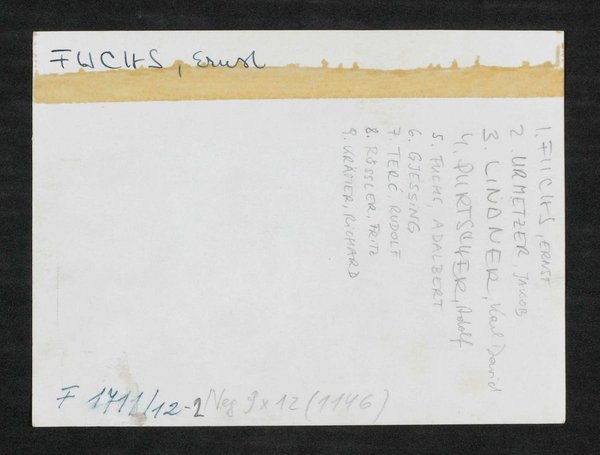 FUCHS, Ernst
1. FUCHS, ERNST
2. URMETZER JAKOB
3. LINDNER, Karl David
4. PURTSCHER, Adolf
5. FUCHS, ADALBERT
6. GJESSING
7. TERČ, RUDOLF
8. RÖSSLER, FRITZ
9. KRÄMER, RICHARD
F 1711/12-2 Neg 9x12 (1146)